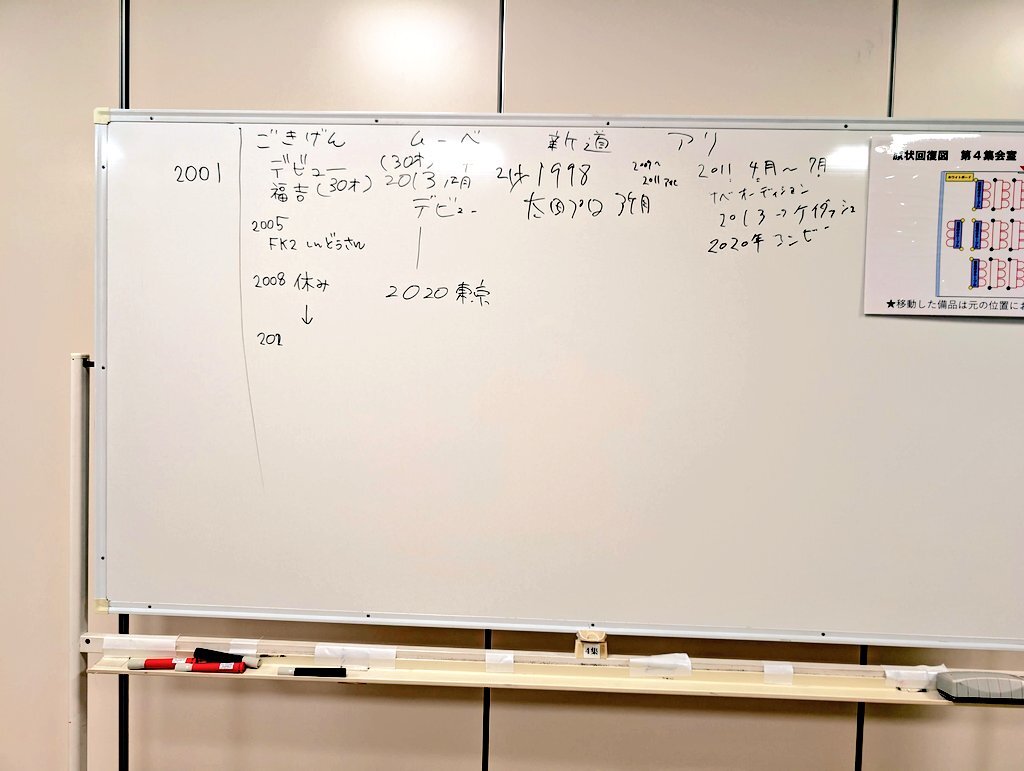 ごきげん
ムーベ
新道
アリ
2001
デビュー
福吉(30才)
(30才)
2013 12月
デビュー
2020 東京
21才 1998
太田プロ 3ヶ月
2009
2011
2011 4月〜7月
ナベオーディション
2013 → ケイダッシュ
2020年 コンビ
2005
FK2 しんどうさん
2008 休み
↓
201
原状回復図 第4集会室
ホワイトボード
★移動した備品は元の位置にお
4集